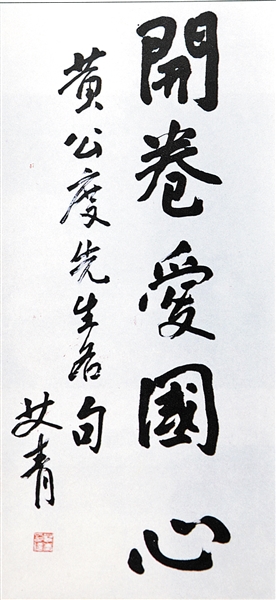 開卷愛國心
黃公度先生名句
艾青